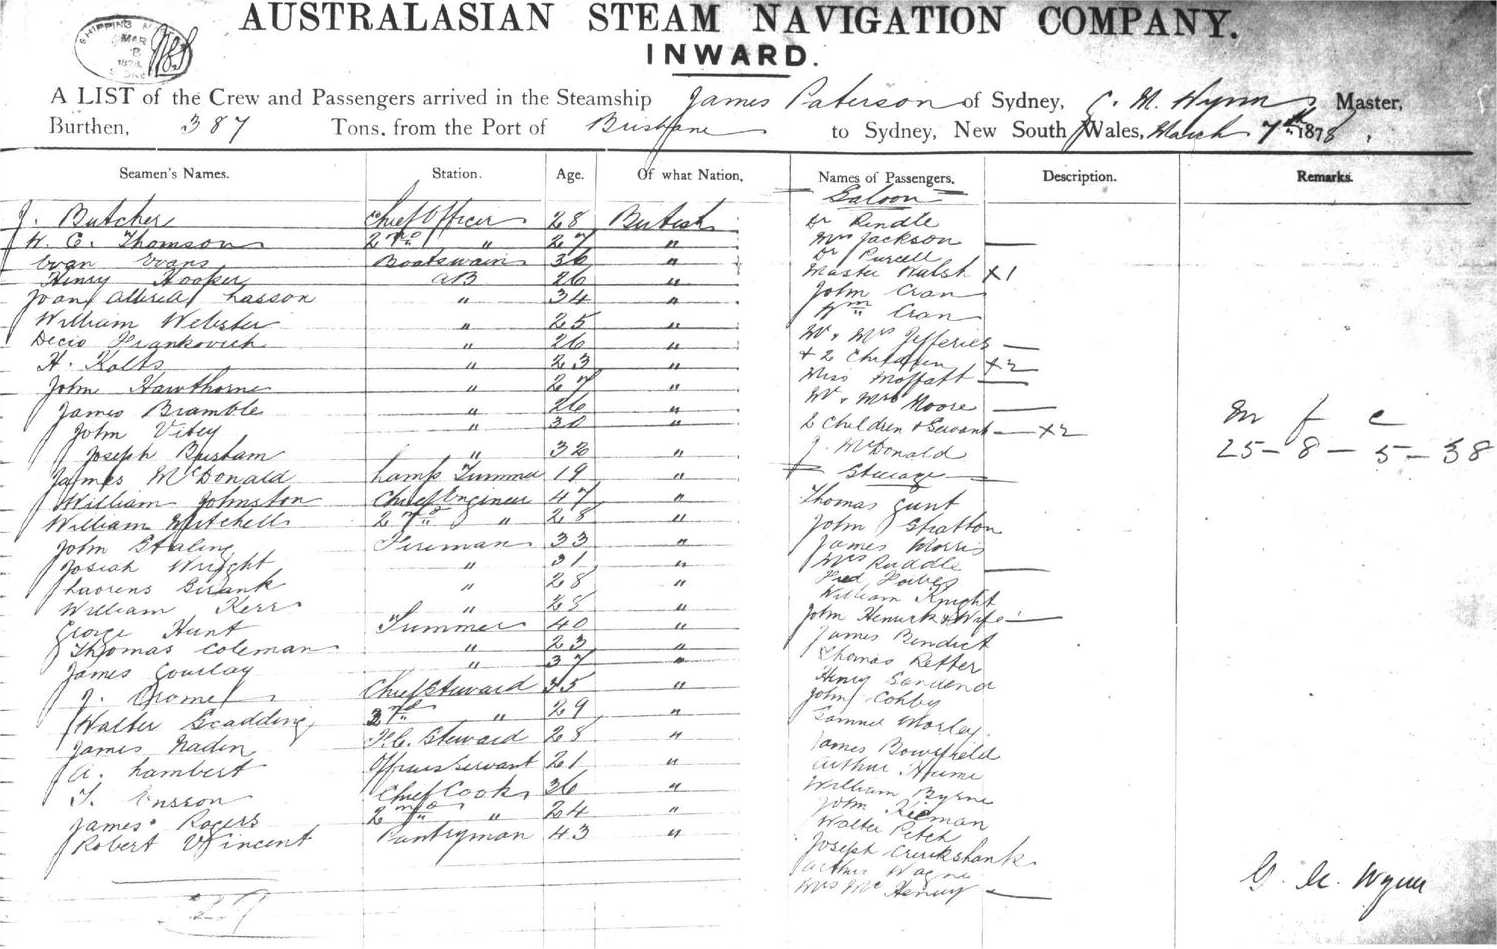 AUSTRALASIAN STEAM NAVIGATION COMPANY.
INWARD.
A LIST of the Crew and Passengers arrived in the Steamship James Paterson of Sydney, C. M. Wynn Master,
Burthen, 387 Tons, from the Port of Brisbane to Sydney, New South Wales, March 7th 1878.
Seamen's Names. Station. Age. Of what Nation. Names of Passengers. Description. Remarks.
Saloon
J. Butcher Chief Officer 28 British Dr Pendle
H. C. Thomson 2nd " 27 " Mrs Jackson
Evan Evans Boatswain 36 " Dr Purcell
Henry Hooper AB 26 " Master Walsh x1
Lasson " 34 " John Cran
William Webster " 25 " Wm Cran
Decio Frankovich " 26 " Mr & Mrs Jefferies
H. Kolts " 23 " + 2 Children x2
John Hawthorne " 27 " Miss Moffatt
James Bramble " 26 " Mr & Mrs Moore
John Vibey " 30 " 2 Children & Servant x2
Joseph " 32 " J. McDonald
James McDonald Lamp Trimmer 19 " Steerage
William Johnston Chief Engineer 47 " Thomas Gunt
William Mitchell 2nd " 28 " John Stratton
John Fireman 33 " James Morris
Josiah Wright " 31 " Mrs Ruddle
Lavrens " 28 " Fred Forbes
William Kerr " 28 " William Knight
George Hunt Trimmer 40 " John & Wife
Thomas Coleman " 23 " James Bendict
James Gourlay " 37 " Thomas Retter
J. Crome Chief Steward 35 " Henry
Walter Scadding 2nd " 29 " John Cohby
James Naden F.C. Steward 28 " Samuel Morley
A. Lambert Officers Servant 21 " James Bowfield
T. Chief Cook 36 " Arthur Hume
James Rogers 2nd " 24 " William Byrne
Robert Vincent Pantryman 43 " John Kieman
Walter Petch
Joseph Cruickshank
Arthur Wagner
Mrs McHenry
m f c
25 - 8 - 5 - 38
C. M. Wynn